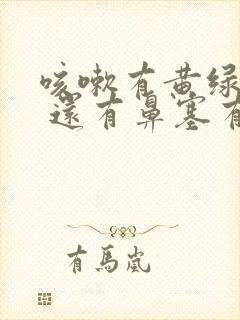 咳嗽有黄绿
還有鼻塞有
有馬嵐